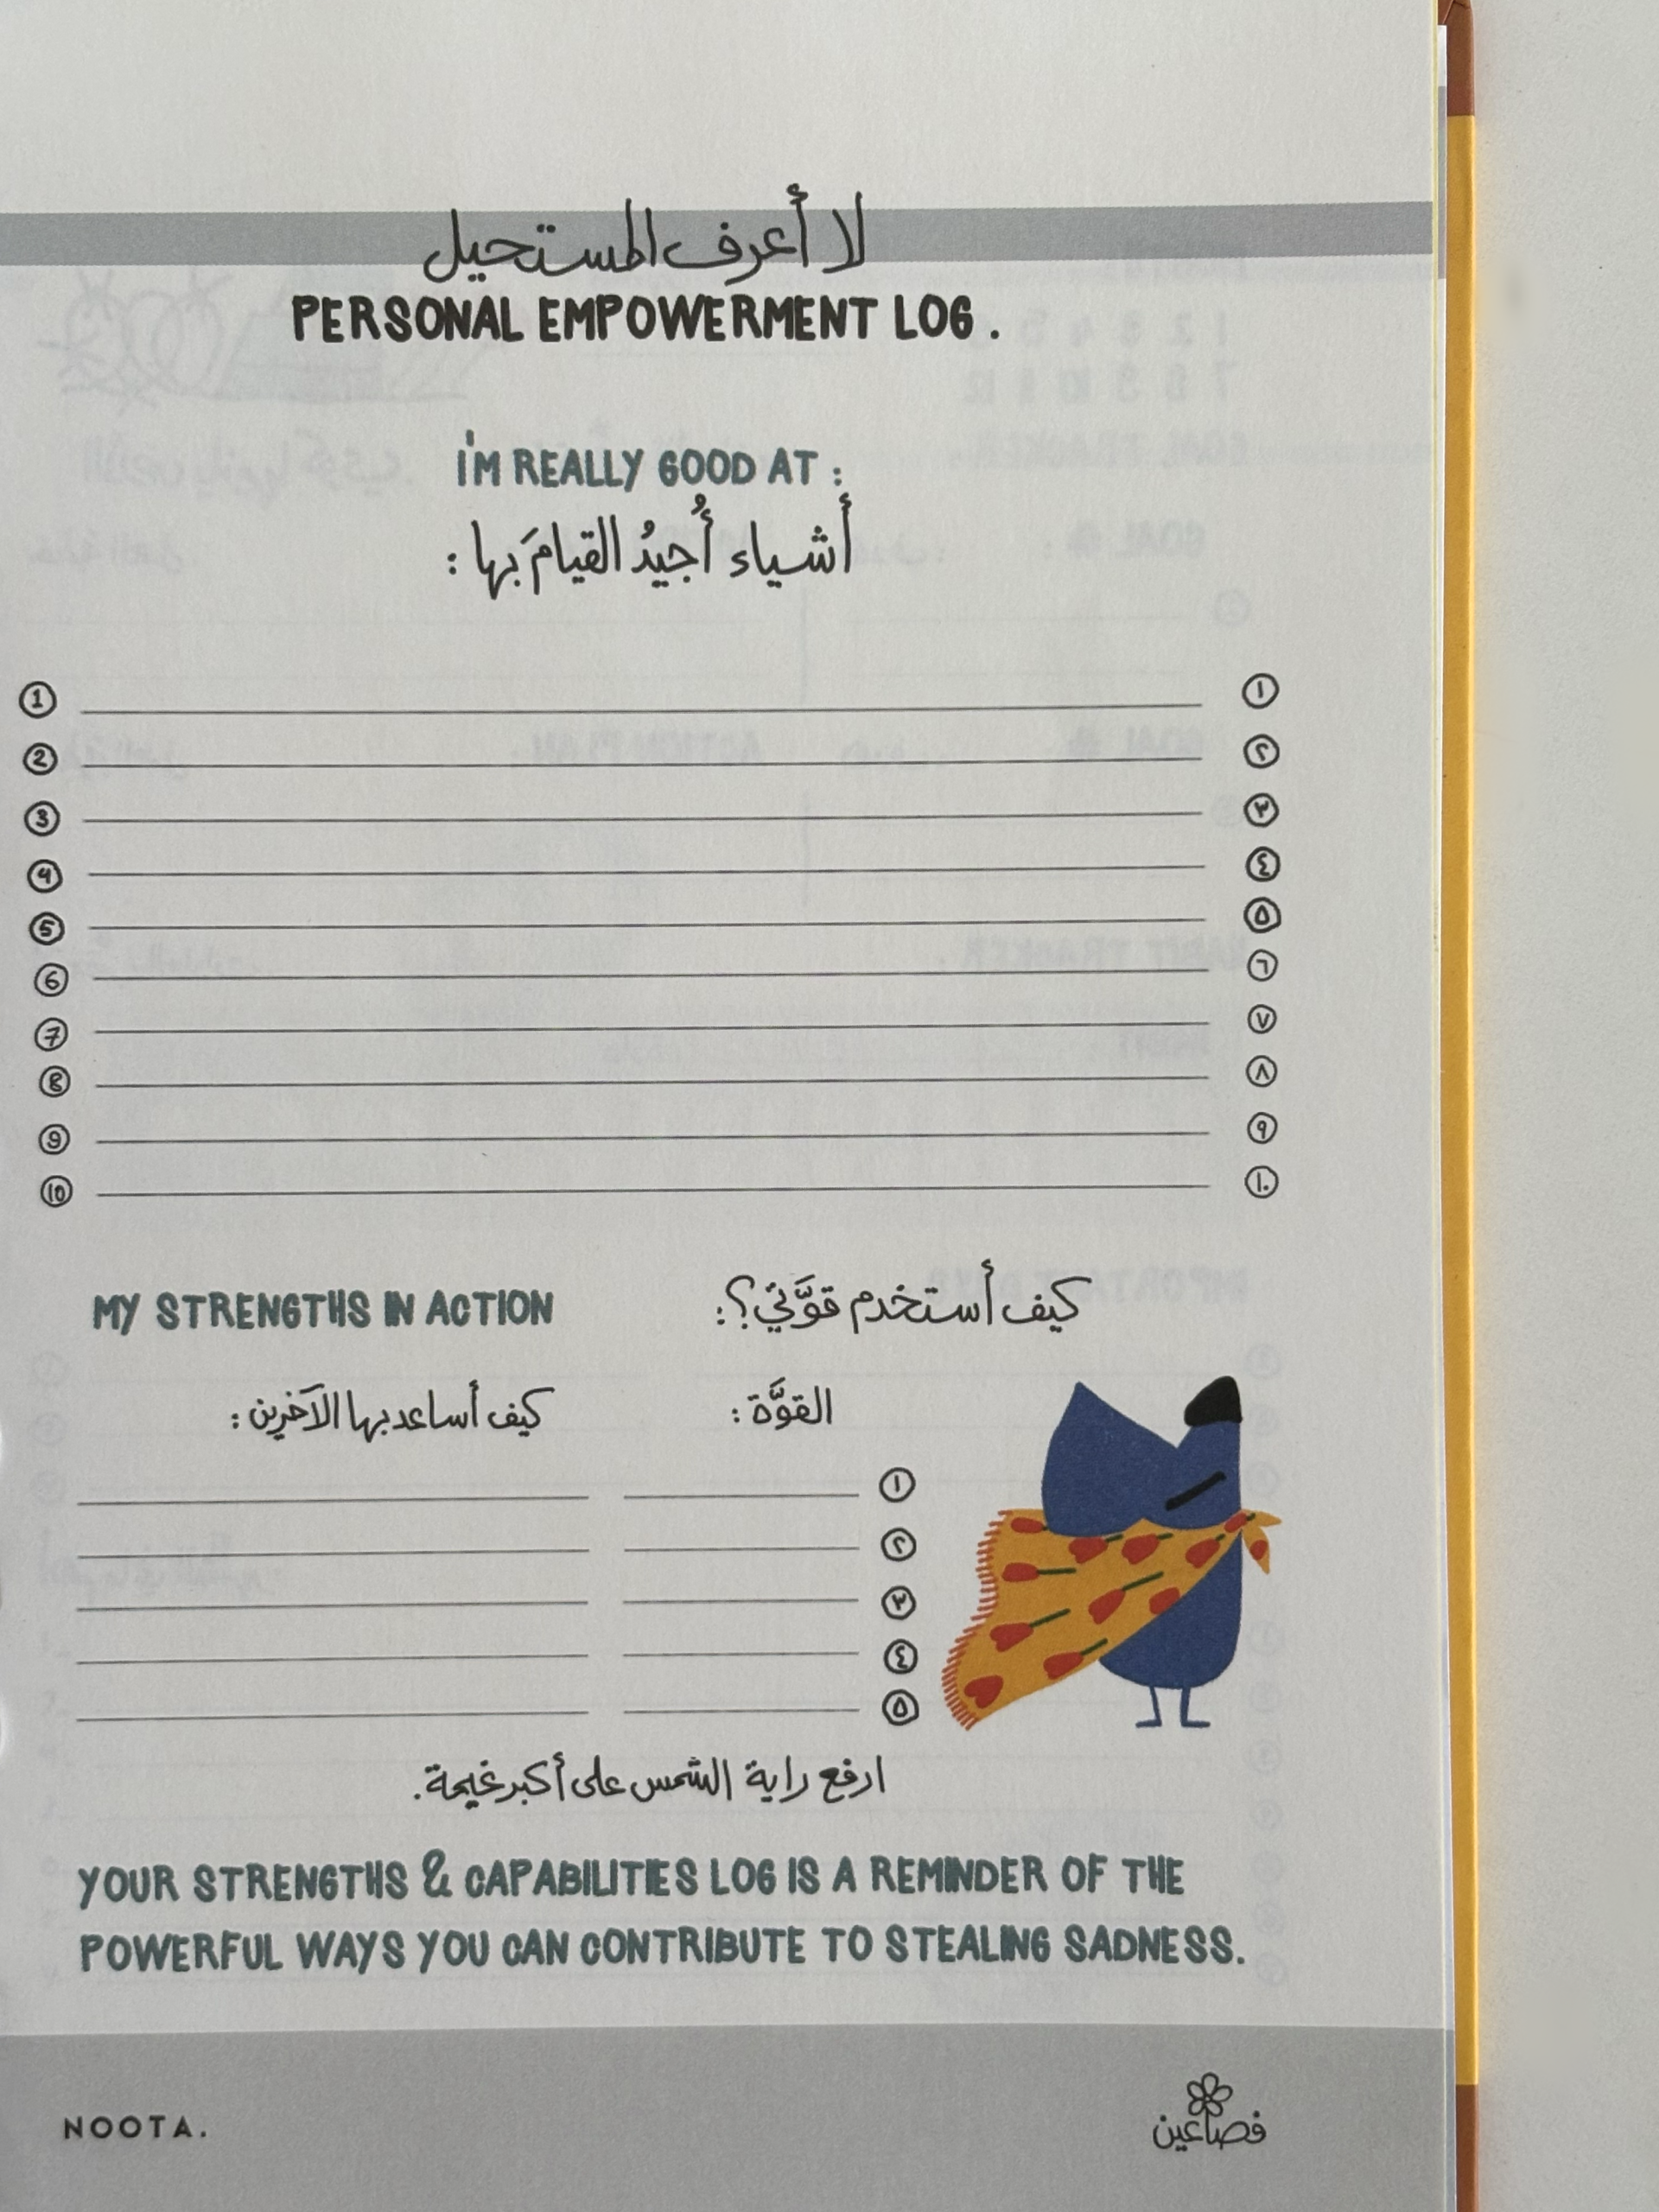 لا أعرف المستحيل
PERSONAL EMPOWERMENT LOG.
I'M REALLY GOOD AT:
أشياء أُجيدُ القيامَ بها:
1 ١
2 ٢
3 ٣
4 ٤
5 ٥
6 ٦
7 ٧
8 ٨
9 ٩
10 ١٠
MY STRENGTHS IN ACTION
كيف أستخدم قوَّتي؟:
القوَّة:
كيف أساعد بها الآخرين:
١
٢
٣
٤
٥
ارفع راية الشمس على أكبر غيمة.
YOUR STRENGTHS & CAPABILITIES LOG IS A REMINDER OF THE
POWERFUL WAYS YOU CAN CONTRIBUTE TO STEALING SADNESS.
NOOTA.
فصاعين